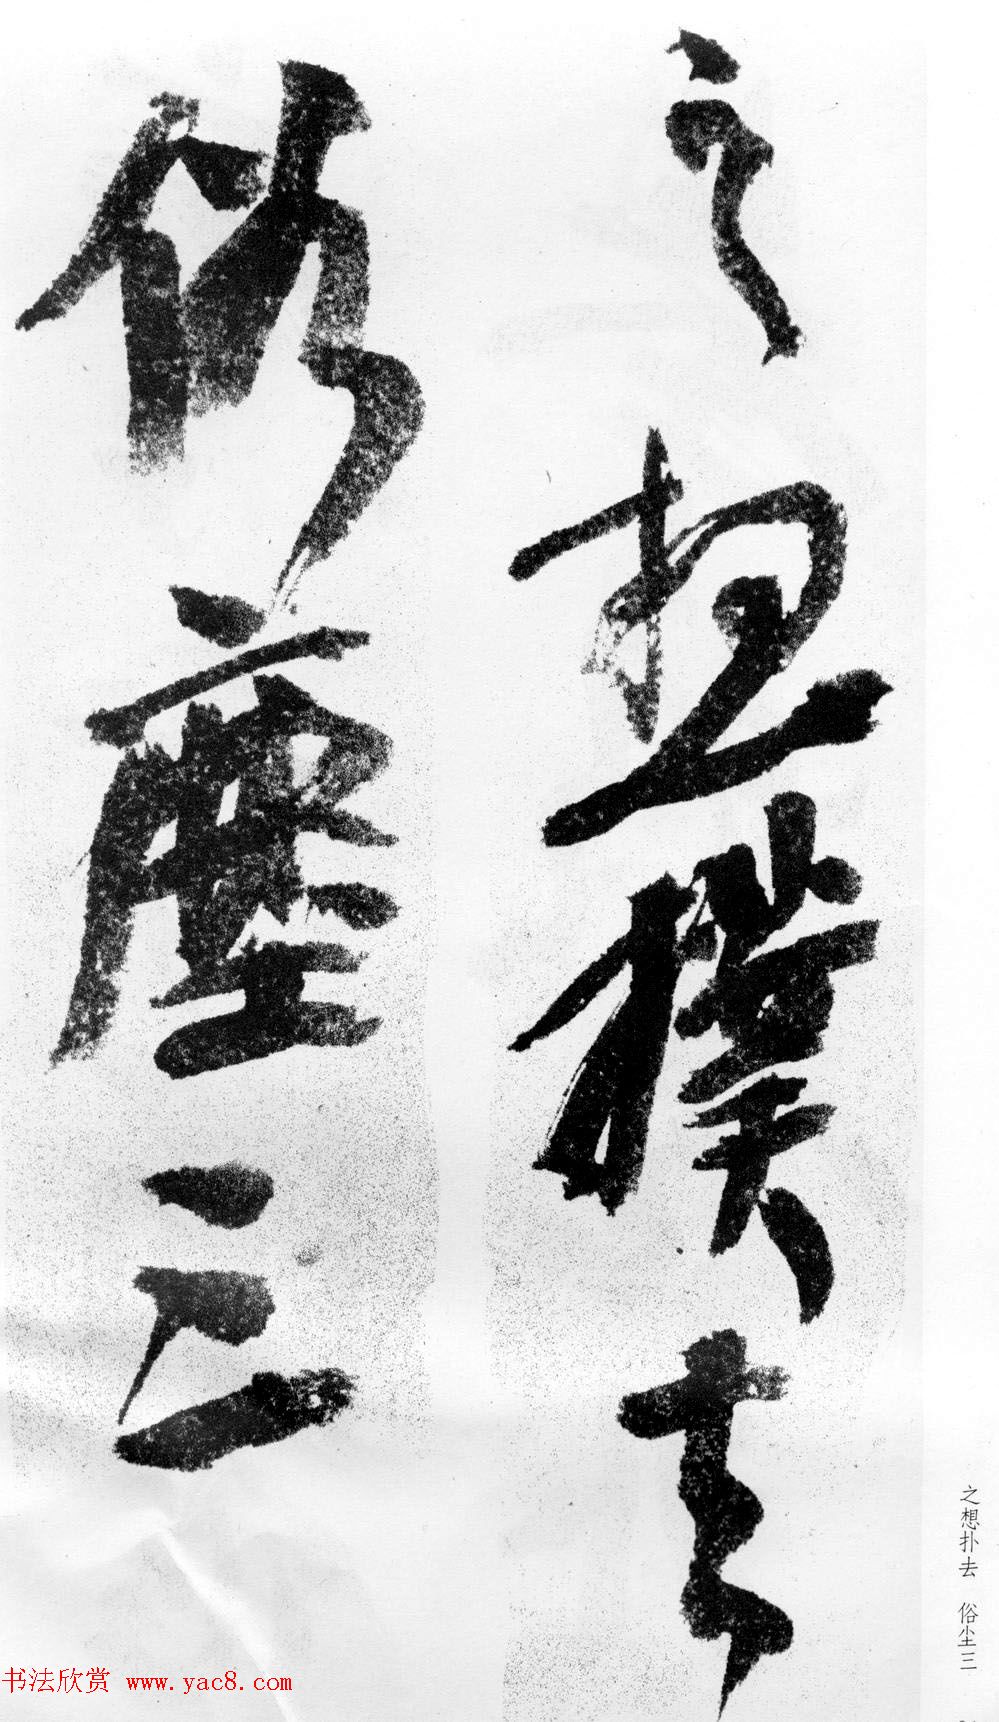 之想撲去
俗塵三
之想扑去　俗尘三
书法欣赏 www.yac8.com